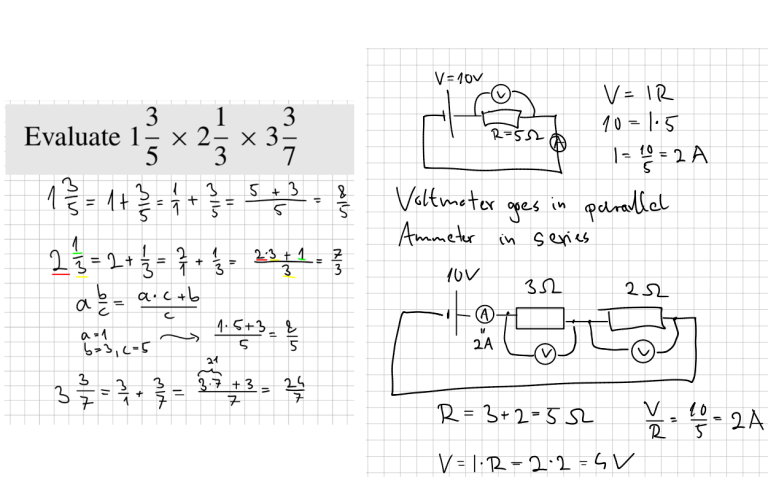 Evaluate 1 3/5 × 2 1/3 × 3 3/7
1 3/5 = 1 + 3/5 = 1/1 + 3/5 = (5 + 3)/5 = 8/5
2 1/3 = 2 + 1/3 = 2/1 + 1/3 = (2·3 + 1)/3 = 7/3
a b/c = (a·c + b)/c
a=1
b=3, c=5 → (1·5+3)/5 = 8/5
21
3 3/7 = 3/1 + 3/7 = (3·7 + 3)/7 = 24/7
V=10V
V
R=5Ω
A
V = IR
10 = I·5
I = 10/5 = 2A
Voltmeter goes in parallel
Ammeter in series
10V
3Ω
2Ω
A
"
2A
V
V
R = 3+2 = 5Ω
V/R = 10/5 = 2A
V = I·R = 2·2 = 4V